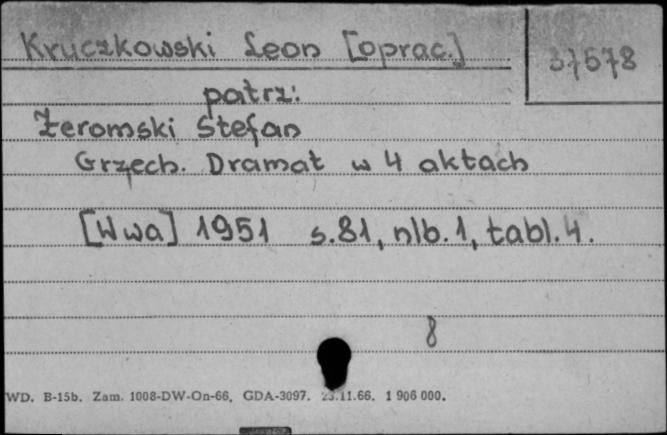 Kruczkowski Leon [oprac.]
37578
patrz:
Żeromski Stefan
Grzech. Dramat w 4 aktach
[Wwa] 1951 s.81, nlb.1, tabl.4.
8
WD. B-15b. Zam. 1008-DW-On-66. GDA-3097. 23.11.66. 1 906 000.